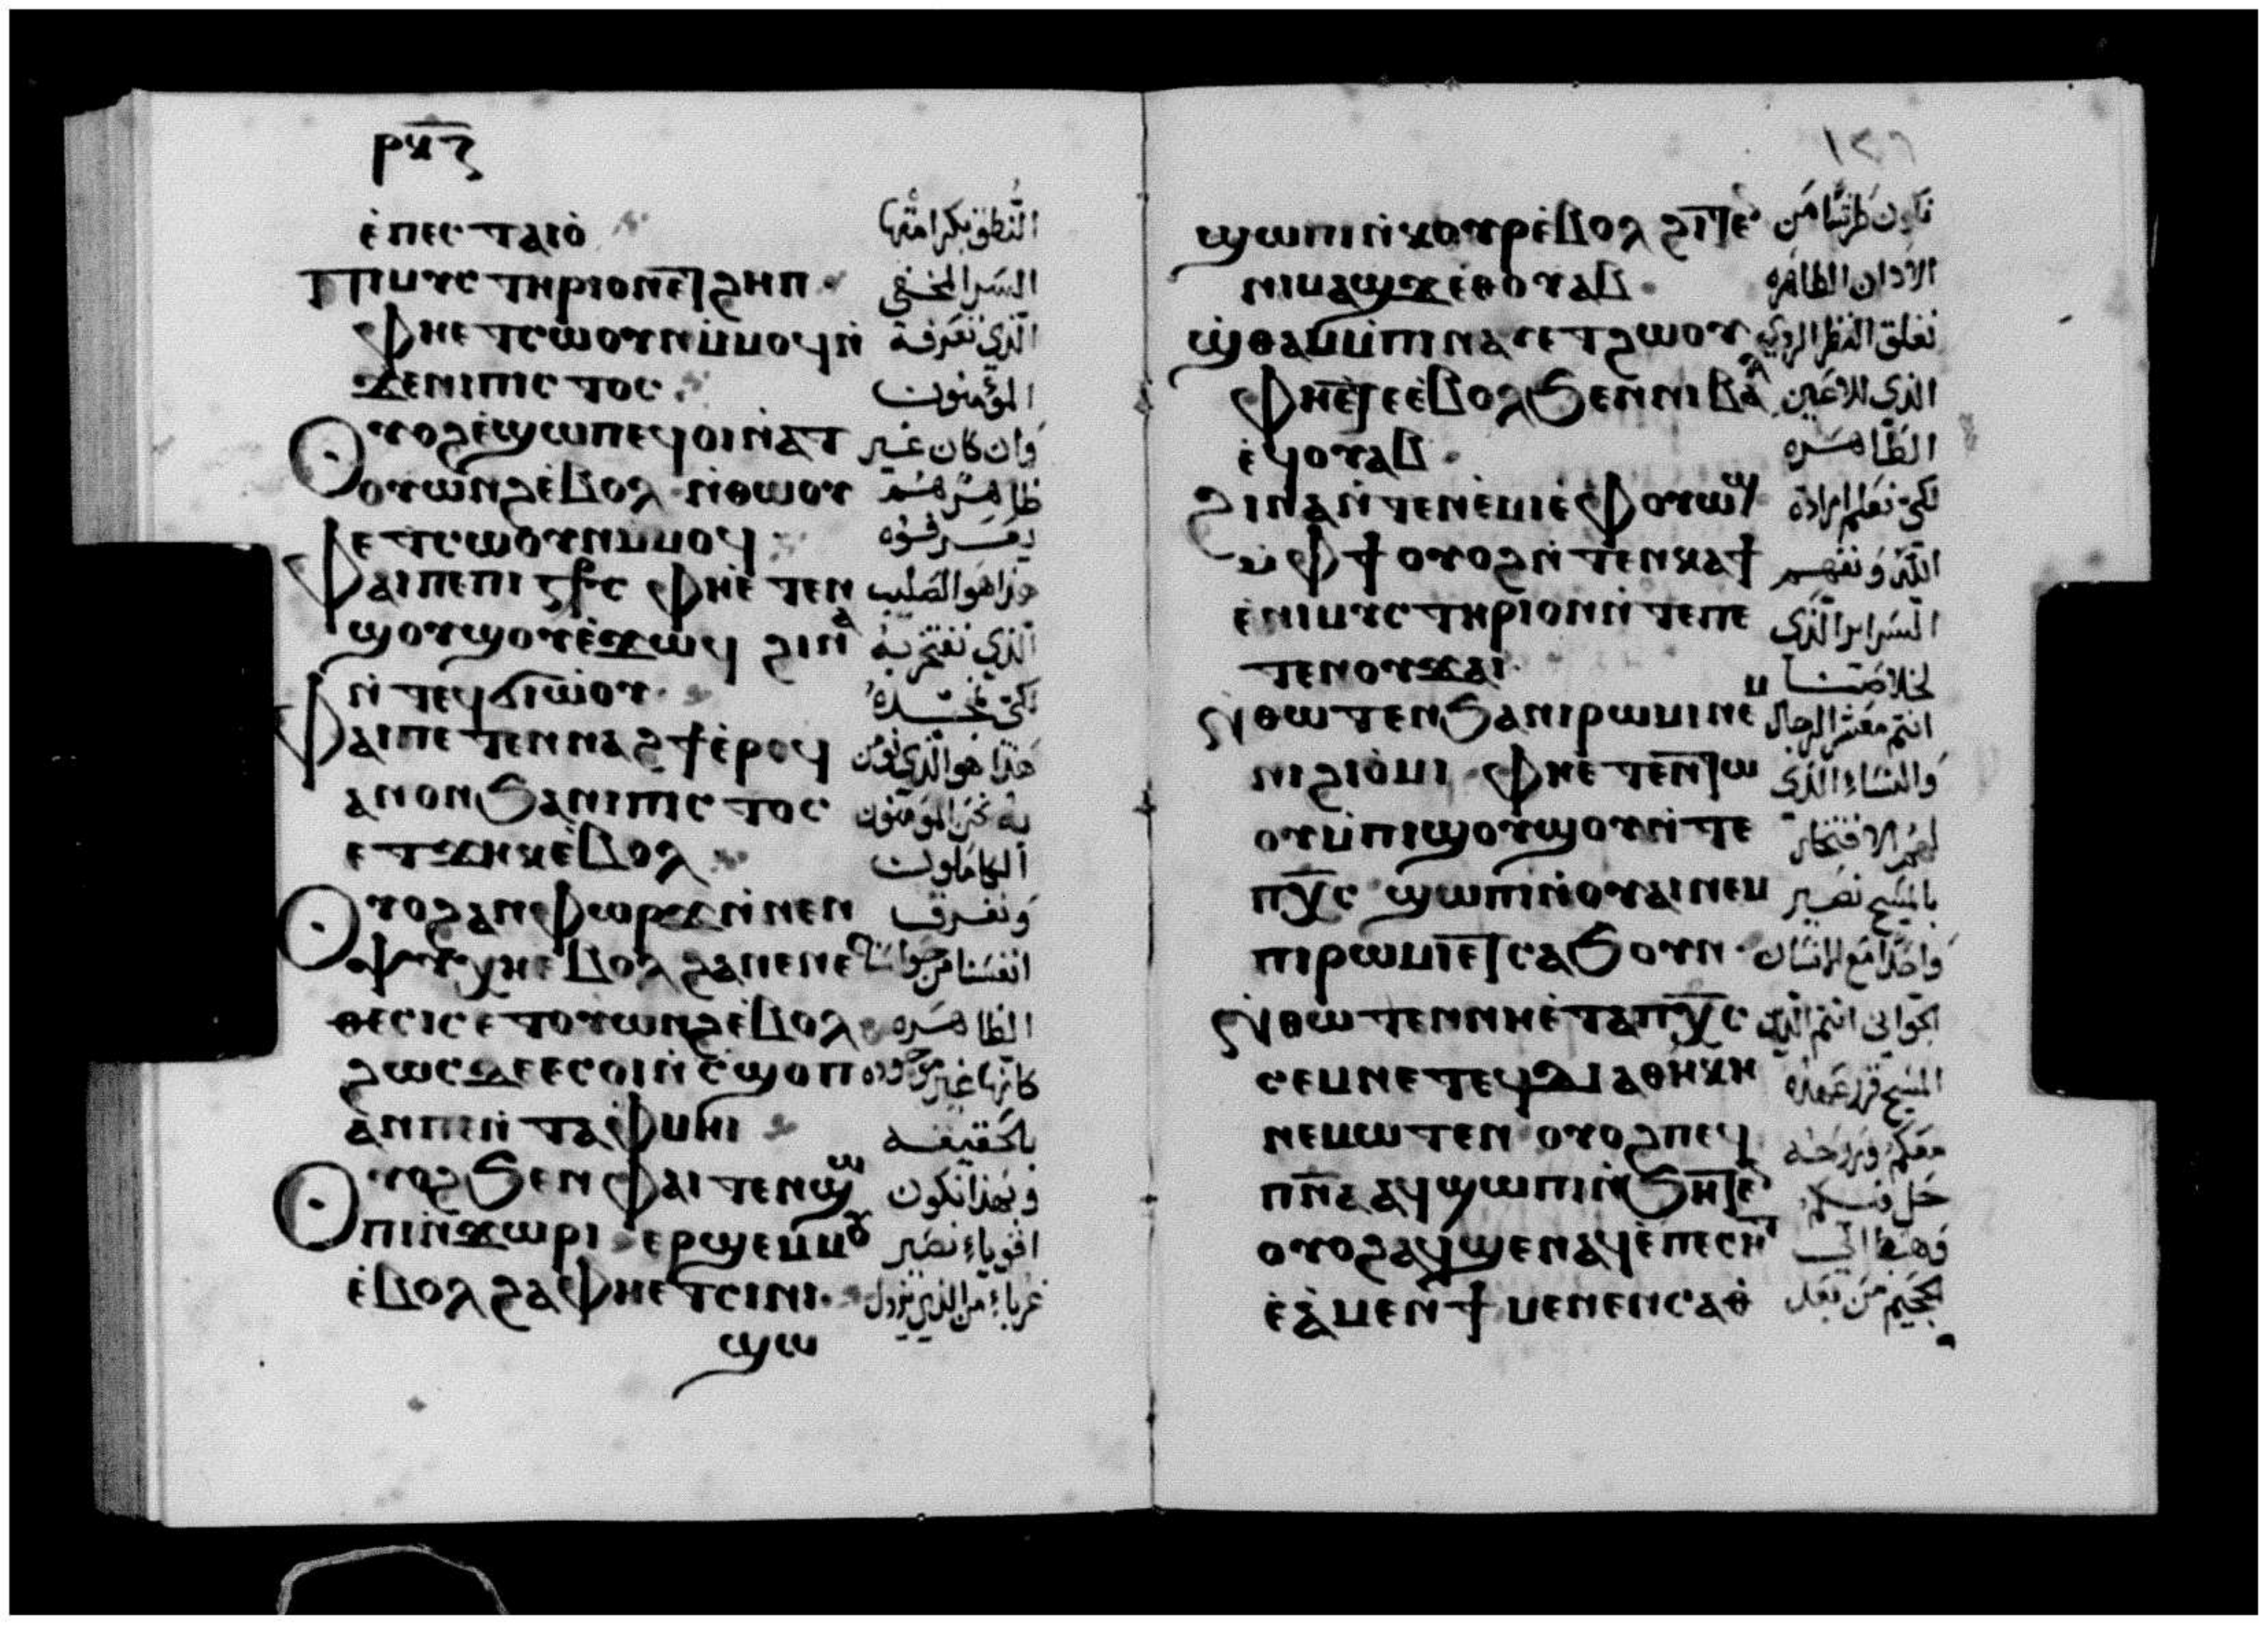 ⲣⲕⲍ
ⲉ̀ⲡⲉⲥⲧⲁⲓⲟ̀ النطق بكرامتها
Ⲡⲓⲙⲩⲥⲧⲏⲣⲓⲟⲛⲉⲧϩⲏⲡ السر المخفي
Ⲫⲏⲉⲧⲥⲱⲟⲩⲛⲙ̀ⲙⲟϥⲛ̀ الذي تعرفه
ϫⲉⲛⲓⲡⲓⲥⲧⲟⲥ المؤمنون
Ⲟⲩⲟϩⲉ̀ϣⲱⲡⲉϥⲟⲓⲛ̀ⲁⲧ وان كان غير
ⲟⲩⲱⲛϩⲉ̀ⲃⲟⲗ ⲛ̀ⲑⲱⲟⲩ ظاهر هم
ⲡⲉⲧⲥⲱⲟⲩⲛⲙ̀ⲙⲟϥ يعرفوه
Ⲫⲁⲓⲡⲉⲡⲓⲥⳁⲥ ⲫⲏⲉ̀ⲧⲉⲛ هذا هو الصليب
ϣⲟⲩϣⲟⲩⲉ̀ϫⲱϥ ϩⲓⲛⲁ الذي نفتخر به
ⲛ̀ⲧⲉϥϭⲓⲱ̀ⲟⲩ لكي
Ⲫⲁⲓⲡⲉⲧⲉⲛⲛⲁϩϯⲉ̀ⲣⲟϥ هذا هو الذي نؤمن
ⲁⲛⲟⲛϧⲁⲛⲓⲡⲓⲥⲧⲟⲥ به نحن المؤمنون
ⲉⲧϫⲏⲕⲉ̀ⲃⲟⲗ الكاملون
Ⲟⲩⲟϩⲁⲛⲫⲱⲣϫⲛ̀ⲛⲉⲛ ونفرق
ⲯⲩⲭⲏⲉ̀ⲃⲟⲗ ϩⲁⲛⲉⲛⲉ انفسنا من حواسنا
ⲑⲉⲥⲓⲥⲉⲧⲟⲩⲱⲛϩⲉ̀ⲃⲟⲗ الظاهره
ϩⲱⲥϫⲉⲉⲥⲟⲓⲛ̀ⲥ̀ϣⲟⲡ كانها غير موجوده
ⲁⲛⲡⲉⲛ̀ⲧⲁⲫⲙⲏⲓ بالحقيقه
Ⲟⲩⲟϩϧⲉⲛⲫⲁⲓⲧⲉⲛϣⲱ وبهذا نكون
ⲡⲓⲛ̀ϫⲱⲣⲓ ⲉⲣϣⲉⲙⲙⲟ اقوياء نصير
ⲉ̀ⲃⲟⲗϩⲁⲫⲏⲉⲧⲥⲓⲛⲓ غرباء من الذي يزول
ϣⲱ
١٢٦
ϣⲱⲡⲓⲛ̀ⲕⲟⲩⲣⲉ̀ⲃⲟⲗ ϩⲓⲧⲉ من
ⲛⲓⲙⲁϣϫⲉⲑⲟⲩⲁⲃ الاذان الطاهره
ϣⲑⲁⲙⲙ̀ⲡⲓⲛⲁⲩⲉⲧϩⲱⲟⲩ نغلق النظر الردي
Ⲫⲏⲉ̀ⲧⲉⲉ̀ⲃⲟⲗϧⲉⲛⲛⲓⲃⲁⲗ الذي للاعين
ⲉϥⲟⲩⲁⲃ الطاهره
Ϩⲓⲛⲁⲛ̀ⲧⲉⲛⲉ̀ⲙⲓⲉ̀ⲫⲟⲩⲱϣ لكي نعلم ارادة
ⲙ̀ⲫϯ ⲟⲩⲟϩⲛ̀ⲧⲉⲛⲕⲁϯ الله ونفهم
ⲉ̀ⲛⲓⲙⲩⲥⲧⲏⲣⲓⲟⲛⲛ̀ⲧⲉⲡⲉ السراير الذي
ⲧⲉⲛⲟⲩϫⲁⲓ لخلاصنا
Ⲛ̀ⲑⲱⲧⲉⲛϧⲁⲛⲓⲣⲱⲙⲓⲛⲉⲙ انتم معشر الرجال
ⲛⲓϩⲓⲟ̀ⲙⲓ ⲫⲏⲉ̀ⲧⲉⲛⲧⲱ والنساء الذي
ⲟⲩⲙ̀ⲡⲓϣⲟⲩϣⲟⲩⲛ̀ⲧⲉ لهم الافتخار
ⲡⲭⲥ ϣⲱⲡⲓⲛ̀ⲟⲩⲁⲓⲛⲉⲙ بالمسيح نصير
ⲡⲓⲣⲱⲙⲓⲉⲧⲥⲁϧⲟⲩⲛ واحدا مع الانسان
Ⲛ̀ⲑⲱⲧⲉⲛⲛⲏⲉ̀ⲧⲁⲡⲭⲥ الجواني انتم الذين
ⲥⲉⲙⲛⲉⲧⲉϥⲇⲓⲁⲑⲏⲕⲏ المسيح قرر عهده
ⲛⲉⲙⲱⲧⲉⲛ ⲟⲩⲟϩⲡⲉϥ معكم وروحه
ⲡⲛⲁ ⲁϥϣⲱⲡⲓⲛ̀ϧⲏⲧⲉ حل فيكم
ⲟⲩⲟϩⲁϥϣⲉⲛⲁϥⲉ̀ⲡⲉⲥⲏⲧ وهبط الى
ⲉ̀ⲁ̀ⲙⲉⲛϯ ⲙⲉⲛⲉⲛⲥⲁⲑ الجحيم من بعد